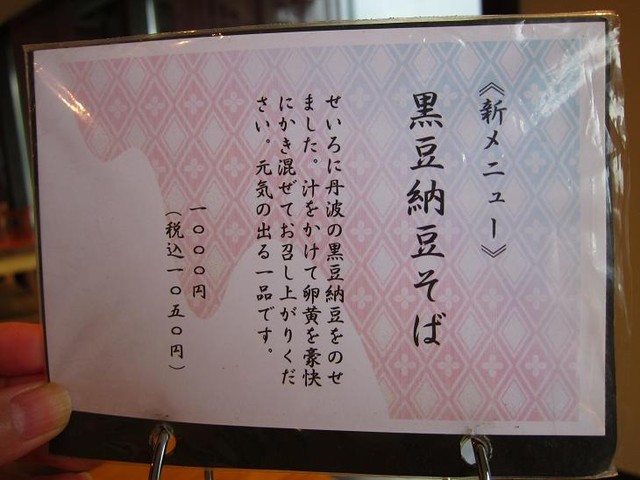 《新メニュー》
黒豆納豆そば
せいろに丹波の黒豆納豆をのせ
ました。汁をかけて卵黄を豪快
にかき混ぜてお召し上がりくだ
さい。元気の出る一品です。
一〇〇〇円
（税込一〇五〇円）